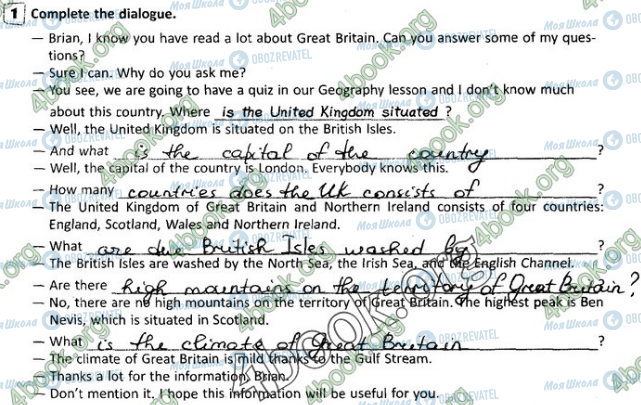 1 Complete the dialogue.
— Brian, I know you have read a lot about Great Britain. Can you answer some of my ques-
tions?
— Sure I can. Why do you ask me?
— You see, we are going to have a quiz in our Geography lesson and I don't know much
about this country. Where is the United Kingdom situated ?
— Well, the United Kingdom is situated on the British Isles.
— And what is the capital of the country ?
— Well, the capital of the country is London. Everybody knows this.
— How many countries does the UK consists of ?
— The United Kingdom of Great Britain and Northern Ireland consists of four countries:
England, Scotland, Wales and Northern Ireland.
— What are the British Isles washed by ?
— The British Isles are washed by the North Sea, the Irish Sea, and the English Channel.
— Are there high mountains on the territory of Great Britain?
— No, there are no high mountains on the territory of Great Britain. The highest peak is Ben
Nevis, which is situated in Scotland.
— What is the climate of Great Britain ?
— The climate of Great Britain is mild thanks to the Gulf Stream.
— Thanks a lot for the information, Brian.
— Don't mention it. I hope this information will be useful for you.